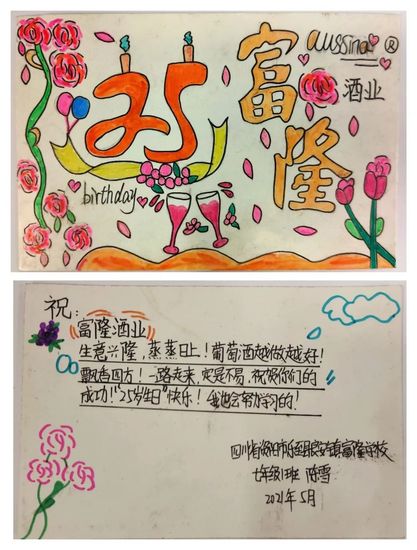 25
birthday
富隆
aussino ®
酒业
祝:
富隆酒业
生意兴隆,蒸蒸日上!葡萄酒越做越好!
飘香四方!一路走来,实是不易,祝贺你们的
成功!“25岁生日”快乐!我也会努力学习的!
四川省资阳市乐至县良安镇富隆学校
七年级1班 陈雪
2021年5月